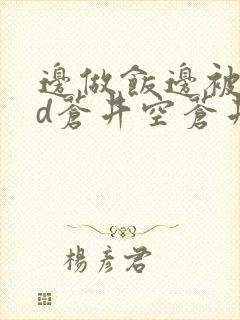 邊做飯邊被
d蒼井空蒼井
楊彥君